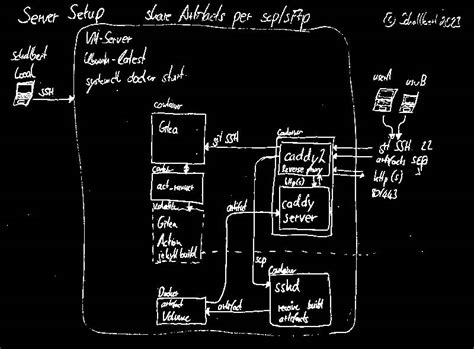 Server Setup share Artifacts per scp/sftp
Schallbert 2023
VM-Server
Ubuntu-latest
systemctl docker start
Schallbert
Local
SSH
userA
userB
container
Gitea
git SSH
Container
caddy 2
Reverse proxy
http(s)
caddy
server
git SSH 22
artifacts scp
http(s)
80/443
act_runner
Gitea
Action
jekyll build
artifact
scp
Docker
artifact
Volume
artifact
Container
sshd
receive build
artifacts